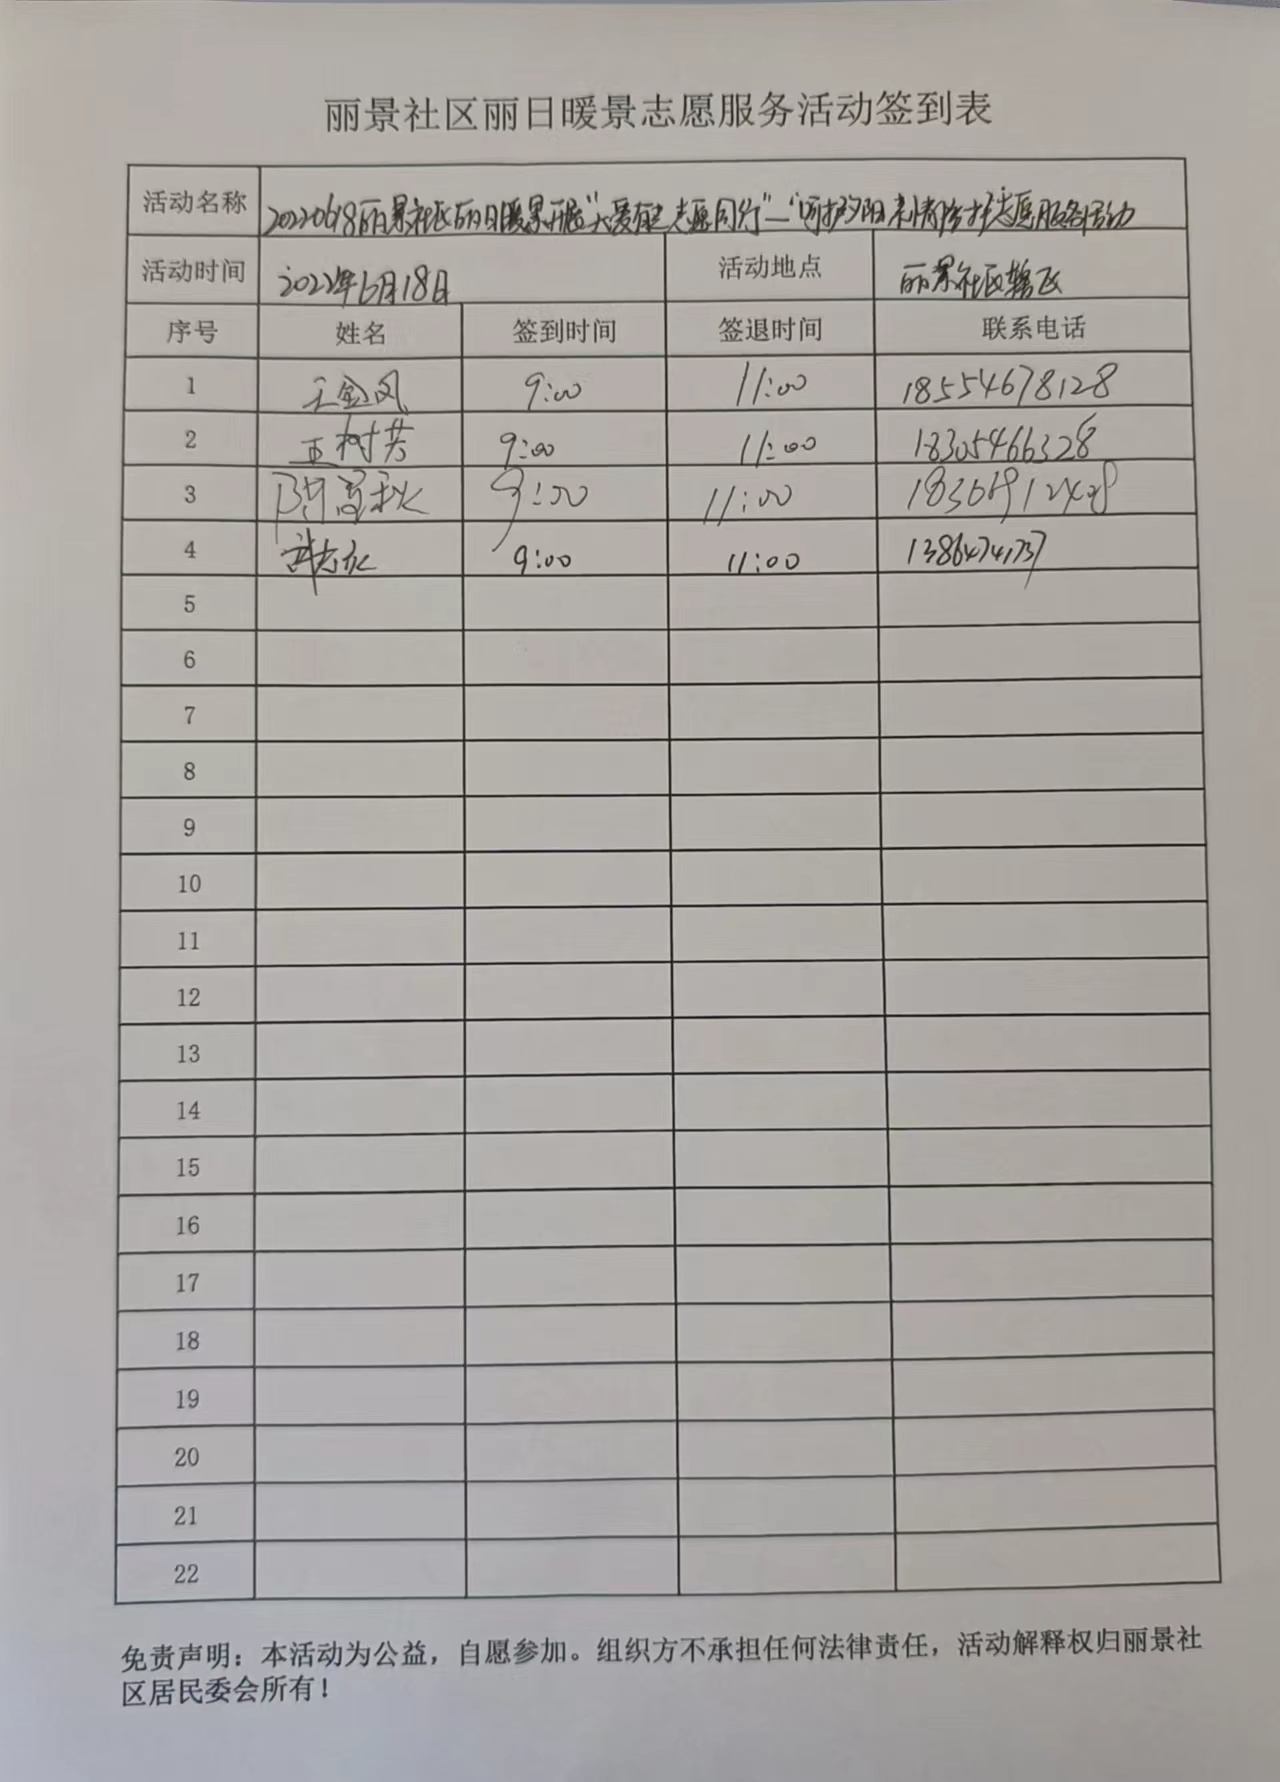 丽景社区丽日暖景志愿服务活动签到表
活动名称 20220618丽景社区丽日暖景开展"大爱有足 志愿同行"—"呵护夕阳 亲情陪护"志愿服务活动
活动时间 2022年6月18日 活动地点 丽景社区辖区
序号 姓名 签到时间 签退时间 联系电话
1 王金凤 9:00 11:00 18554678128
2 王树芳 9:00 11:00 18305466328
3 9:00 11:00
4 9:00 11:00
5
6
7
8
9
10
11
12
13
14
15
16
17
18
19
20
21
22
免责声明：本活动为公益，自愿参加。组织方不承担任何法律责任，活动解释权归丽景社
区居民委会所有！